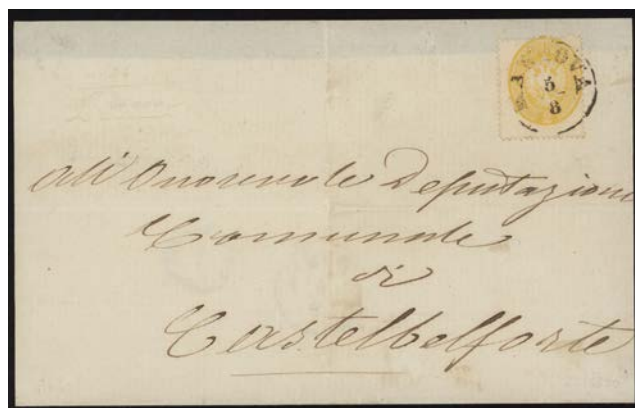 MANTOVA
5
8
All'Onorevole Deputazione
Comunale
di
Castelbelforte